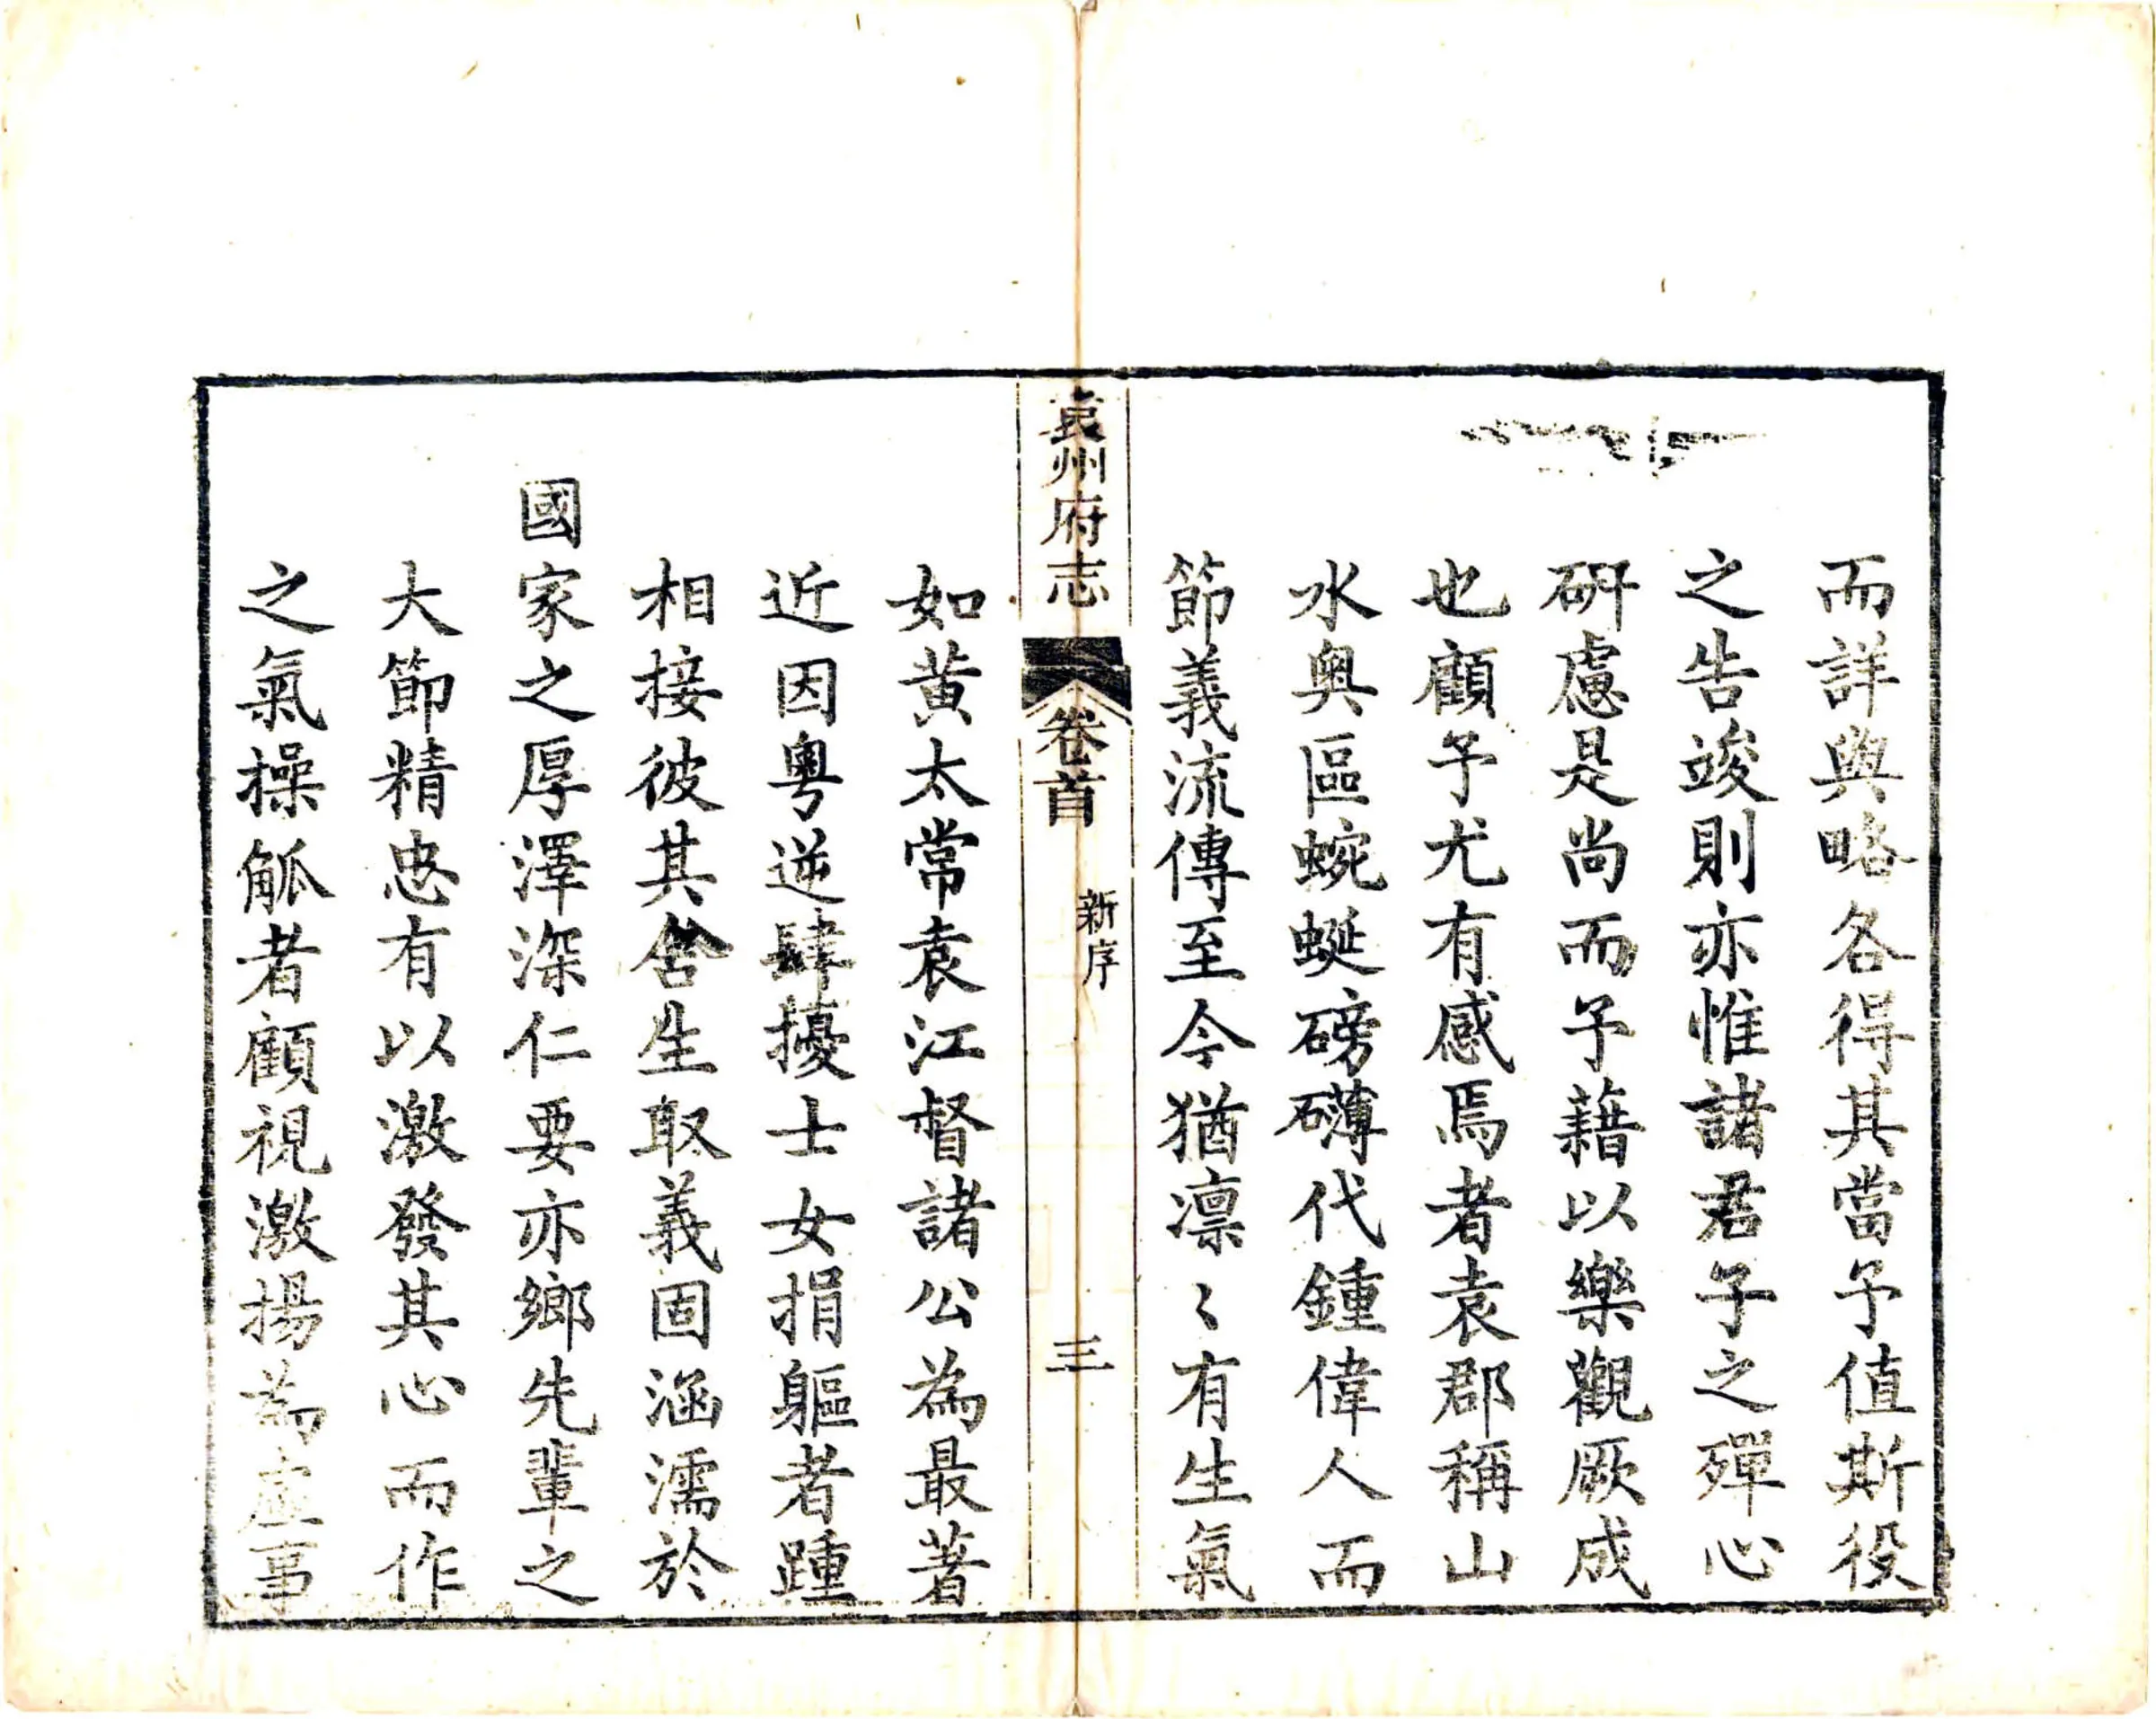 而詳與略各得其當予值斯役
之告竣則亦惟諸君子之殫心
研慮是尚而予藉以樂觀厥成
也顧予尤有感焉者袁郡稱山
水奧區蜿蜒磅礴代鍾偉人而
節義流傳至今猶凛〻有生氣
袁州府志
卷首
新序
三
如黄太常袁江督諸公為最著
近因粤逆肆擾士女捐軀者踵
相接彼其舍生取義固涵濡於
國家之厚澤深仁要亦鄉先輩之
大節精忠有以激發其心而作
之氣操觚者顧視激揚為虛事